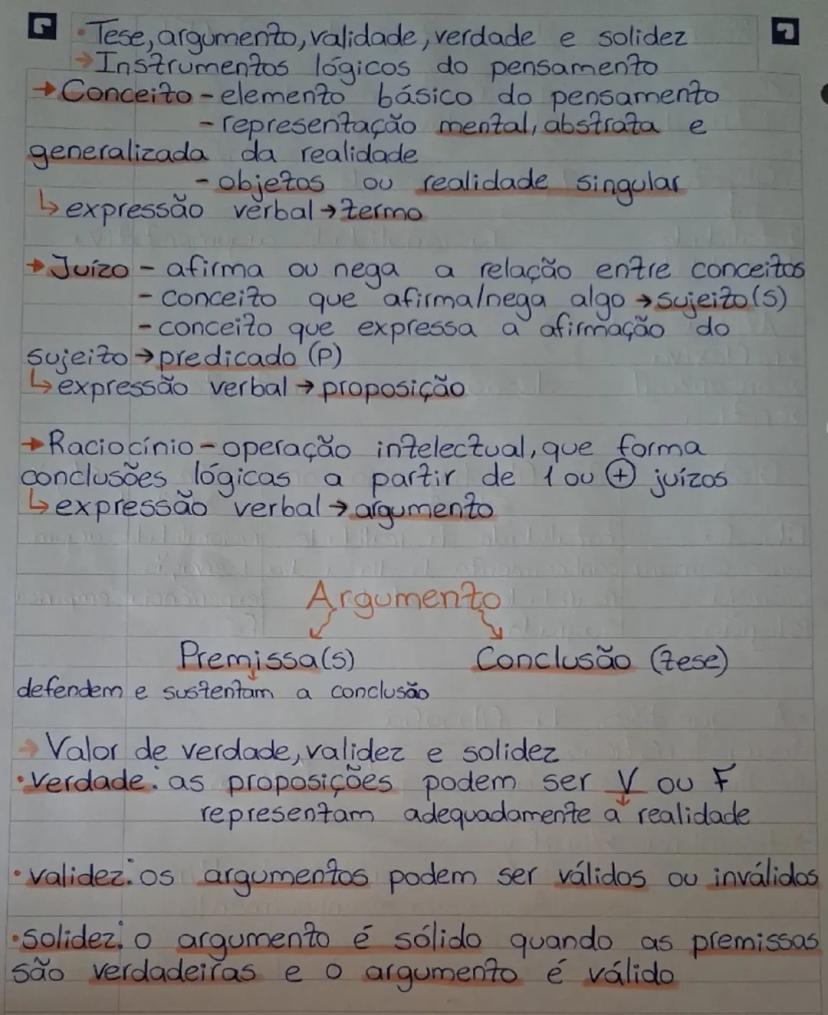 • Tese, argumento, validade, verdade e solidez
→ Instrumentos lógicos do pensamento
→ Conceito - elemento básico do pensamento
- representação mental, abstrata e
generalizada da realidade
- objetos ou realidade singular
↳ expressão verbal → termo
→ Juízo - afirma ou nega a relação entre conceitos
- conceito que afirma/nega algo → sujeito(s)
- conceito que expressa a afirmação do
sujeito → predicado (P)
↳ expressão verbal → proposição
→ Raciocínio - operação intelectual, que forma
conclusões lógicas a partir de 1 ou ⊕ juízos
↳ expressão verbal → argumento
Argumento
Premissa(s) Conclusão (tese)
defendem e sustentam a conclusão
→ Valor de verdade, validez e solidez
• verdade: as proposições podem ser V ou F
representam adequadamente a realidade
• validez: os argumentos podem ser válidos ou inválidos
• solidez: o argumento é sólido quando as premissas
são verdadeiras e o argumento é válido